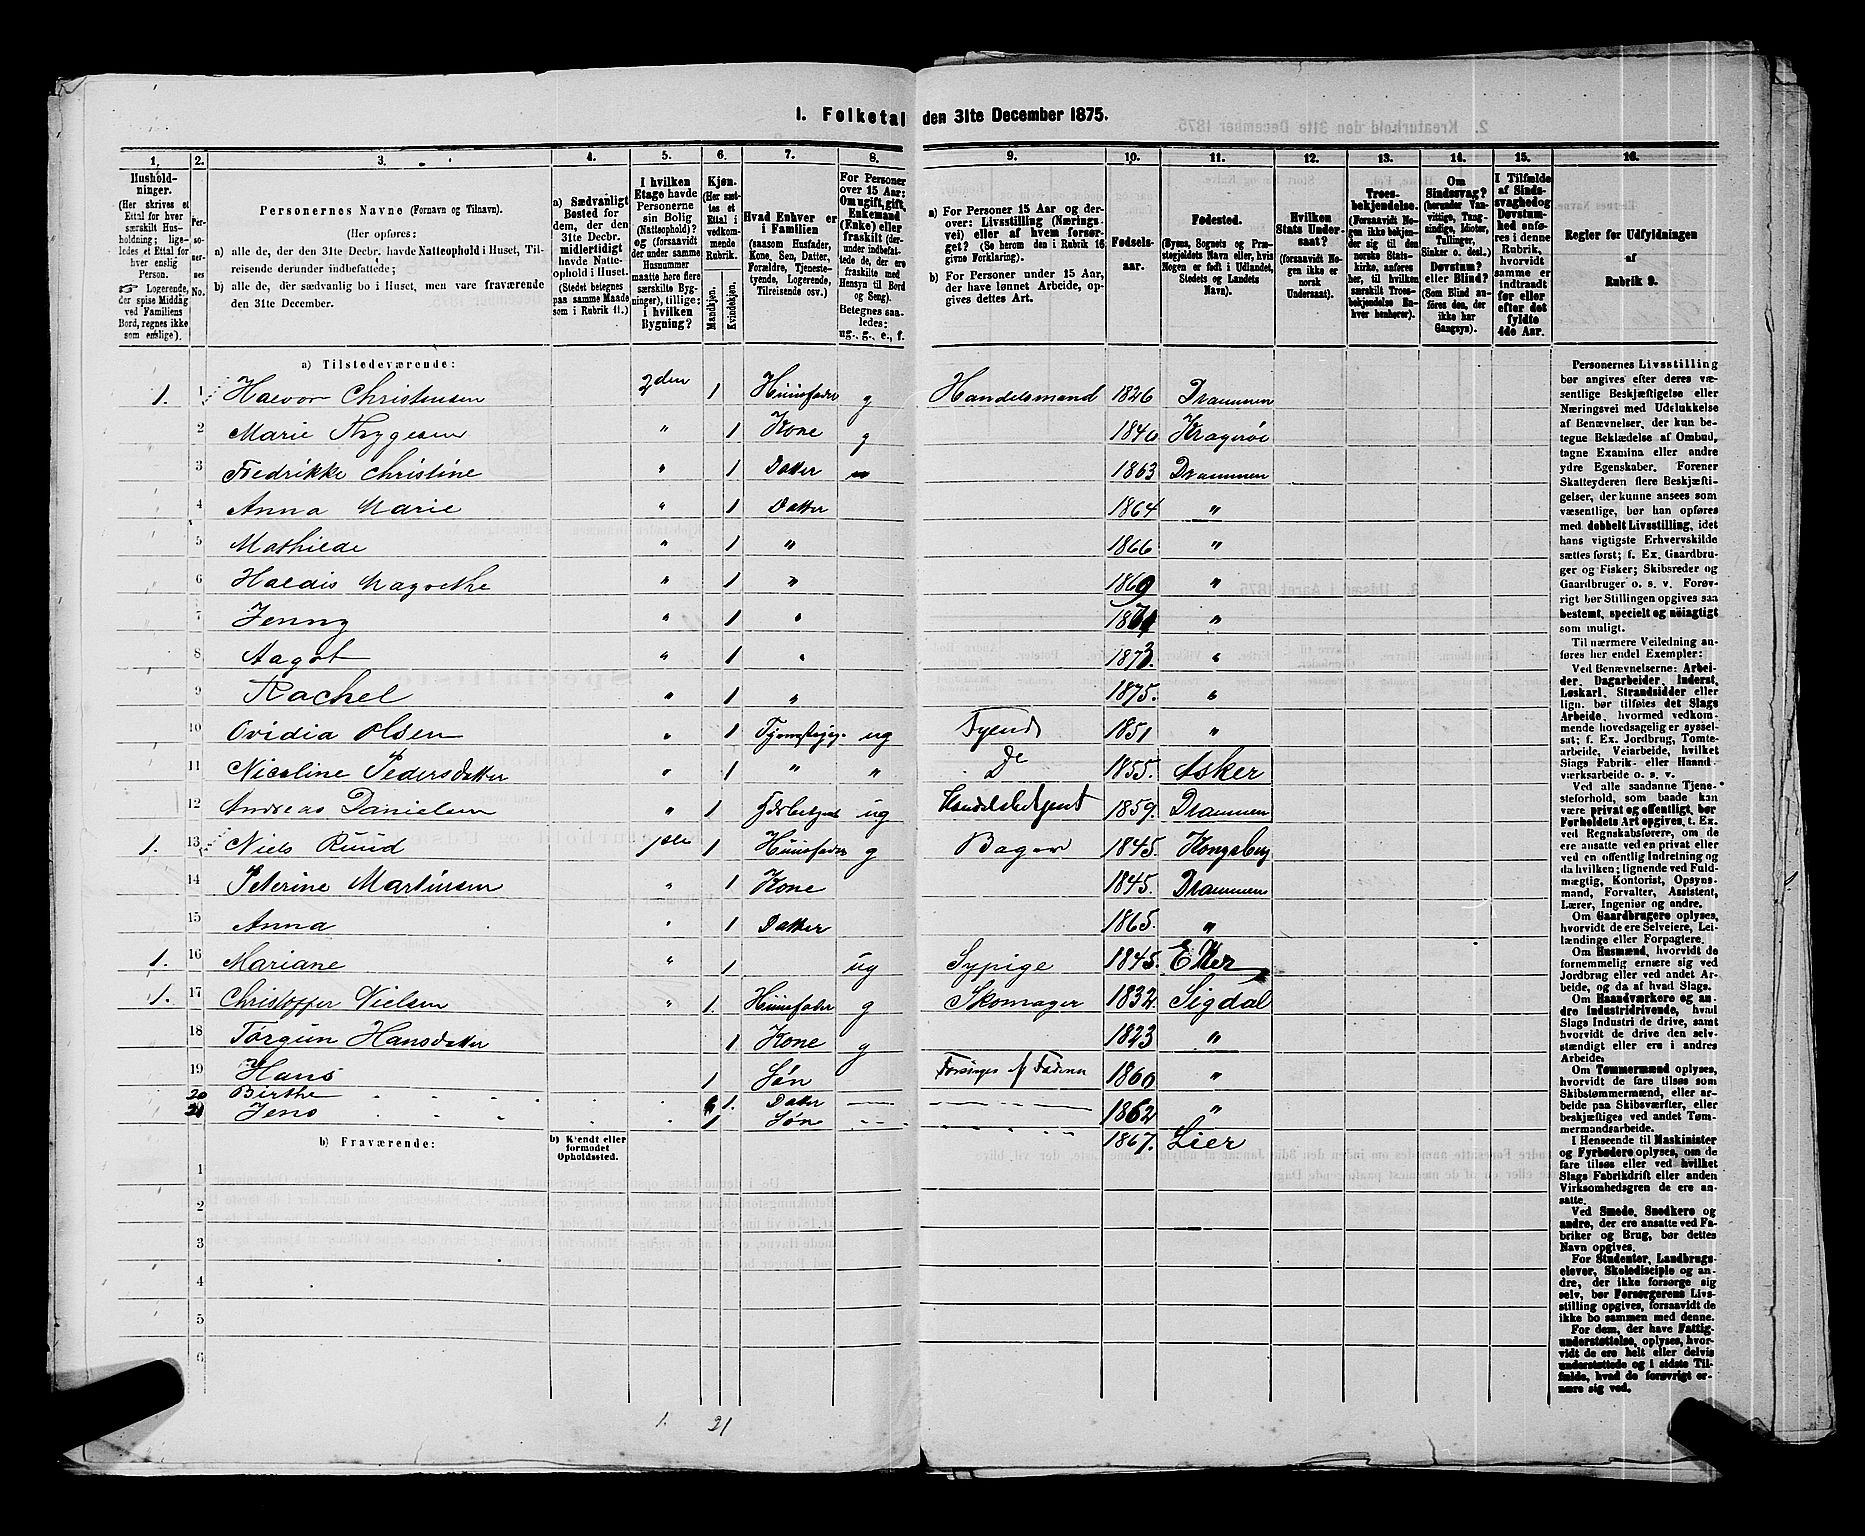 1. Folketal den 31te December 1875.
1. 2. 3. 4. 5. 6. 7. 8. 9. 10. 11. 12. 13. 14. 15. 16.
Hushold-
ninger.
(Her skrives et
Ettal for hver
særskilt Hus-
holdning; lige-
ledes et Ettal for
hver enslig
Person.
☞ Logerende,
der spise Middag
ved Familiens
Bord, regnes ikke
som enslige).
Per-
so-
ner-
nes
No.
Personernes Navne (Fornavn og Tilnavn).
(Her opføres:
a) alle de, der den 31te Decbr. havde Natteophold i Huset, Til-
reisende derunder indbefattede;
b) alle de, der sædvanlig bo i Huset, men vare fraværende
den 31te December.
a) Sædvanligt
Bosted for
dem, der den
31te Decbr.
midlertidigt
havde Natte-
ophold i Huset.
(Stedet betegnes
paa samme Maade
som i Rubrik 11.)
I hvilken
Etage havde
Personerne
sin Bolig
(Natteophold)?
og (forsaavidt
der under samme
Husnummer
maatte være flere
særskilte Byg-
ninger), tillige:
i hvilken
Bygning?
Kjøn.
(Her sæt-
tes et
Ettal i
vedkom-
mende
Rubrik.
Mandkjøn.
Kvindekjøn.
Hvad Enhver er
i Familien
(saasom Husfader,
Kone, Søn, Datter,
Forældre, Tjeneste-
tyende, Logerende,
Tilreisende osv.)
For Personer
over 15 Aar:
Om ugift, gift,
Enkemand
(Enke) eller
fraskilt (der-
under indbefat-
tede de, der ere
fraskilte med
Hensyn til Bord
og Seng).
Betegnes saa-
ledes:
ug., g., e., f.
a) For Personer 15 Aar og der-
over: Livsstilling (Nærings-
vei) eller af hvem forsør-
get? (Se herom den i Rubrik 16
givne Forklaring).
b) For Personer under 15 Aar,
der have lønnet Arbeide, op-
gives dettes Art.
Fødsels-
aar.
Fødested.
(Byens, Sognets og Præ-
stegjeldets Navn eller, hvis
Nogen er født i Udlandet,
Stedets og Landets
Navn).
Hvilken
Stats Under-
saat?
(forsaavidt No-
gen ikke er
norsk
Undersaat).
Troes-
bekjendelse.
(Forsaavidt No-
gen ikke bekjen-
der sig til den
norske Stats-
kirke, anføres
her, til hvilken
særskilt Troes-
bekjendelse En-
hver henhører).
Om
Sindssvag?
(herunder Van-
vittige, Tung-
sindige, Idioter,
Tullinger,
Sinker o. desl.).
Døvstum?
eller Blind?
(Som Blind an-
føres den, der
ikke har
Gangsyn).
I Tilfælde
af Sinds-
svaghed og
Døvstum-
hed anfø-
res i denne
Rubrik,
hvorvidt
samme er
indtraadt
før eller
efter det
fyldte
4de Aar.
Regler for Udfyldningen
af
Rubrik 9.
a) Tilstedeværende:
1. 1 Halvor Christensen 2den 1 Huusfader g Handelsmand 1826 Drammen
2 Marie Thygesen " 1 Kone g 1840 Kragerøe
3 Fredrikke Christine " 1 Datter 1863 Drammen
4 Anna Marie " 1 Datter 1864 "
5 Mathilde " 1 " 1866 "
6 Haldis Magrethe " 1 " 1869 "
7 Jenny " 1 " 1871 "
8 Aagot " 1 " 1873. "
9 Rachel " 1 " 1875. "
10 Ovidia Olsen " 1 ug Tyende 1851 "
11 Nicoline Pedersdatter " 1 " " Do 1855. Asker
12 Andreas Danielsen " 1 ug Handelsbetjent 1859. Drammen
1. 13 Niels Ruud 1ste 1 Huusfader g Bager 1845. Kongsberg
14 Peterine Martinsen " 1 Kone 1845. Drammen
15 Anna " 1 Datter 1865. "
1. 16 Mariane " 1 ug Sypige 1845. Eker
1. 17 Christoffer Nielsen " 1. Huusfader g Skomager 1832 Sigdal
18 Torgun Hansdatter 1 Kone g 1823 "
19 Hans 1 Søn Forsørges af Faderen 1860 "
20 Birthe " " " " " 1. Datter 1862 "
21 Jens " " " " " 1 Søn " " 1867. Lier
b) Fraværende:
b) Kjendt eller
formodet
Opholdssted.
1
2
3
4
5
6
1. 21
Personernes Livsstilling
bør angives efter deres væ-
sentlige Beskjæftigelse eller
Næringsvei med Udelukkelse
af Benævnelser, der kun be-
tegne Beklædelse af Ombud,
tagne Examina eller andre
ydre Egenskaber. Forener
Skatteyderen flere Beskjæfti-
gelser, der kunne ansees som
væsentlige, bør han opføres
med dobbelt Livsstilling, idet
hans vigtigste Erhvervskilde
sættes først; f. Ex. Gaardbru-
ger og Fisker; Skibsreder og
Gaardbruger o. s. v. Forøv-
rigt bør Stillingen opgives saa
bestemt, specielt og nöiagtigt
som muligt.
Til nærmere Veiledning an-
føres her endel Exempler:
Ved Benævnelserne: Arbei-
der, Dagarbeider, Inderst,
Løskarl, Strandsidder eller
lign. bør tilføies det Slags
Arbeide, hvormed vedkom-
mende hovedsagelig er syssel-
sat; f. Ex. Jordbrug, Tomte-
arbeide, Veiarbeide, hvilket
Slags Fabrik- eller Haand-
værksarbeide o. s. v.
Ved alle saadanne Tjene-
steforhold, som baade kan
være privat og offentligt, bør
Forholdets Art opgives, t. Ex.
ved Regnskabsførere, om de
ere ansatte ved en privat eller
ved en offentlig Indretning og
da hvilken; lignende ved Fuld-
mægtig, Kontorist, Opsyns-
mand, Forvalter, Assistent,
Lærer, Ingeniør og andre.
Om Gaardbrugere oplyses,
hvorvidt de ere Selveiere, Lei-
lændinge eller Forpagtere.
Om Husmænd, hvorvidt de
fornemmelig ernære sig ved
Jordbrug eller ved andet Ar-
beide, og da af hvad Slags.
Om Haandværkere og an-
dre Industridrivende, hvad
Slags Industri de drive, samt
hvorvidt de drive den selv-
stændigt eller ere i andres
Arbeide.
Om Tømmermænd oplyses,
hvorvidt de fare tilsøs som
Skibstømmermænd, eller ar-
beide paa Skibsværfter, eller
beskjæftiges ved andet Tøm-
mermandsarbeide.
I Henseende til Maskinister
og Fyrbødere oplyses, om de
fare tilsøs eller ved hvilket
Slags Fabrikdrift eller anden
Virksomhedsgren de ere an-
satte.
Ved Smede, Snedkere og
andre, der ere ansatte ved Fa-
briker og Brug, bør dettes
Navn opgives.
For Studenter, Landbrugs-
elever, Skoledisciple og an-
dre, der ikke forsørge sig
selv, bør Forsørgerens Livs-
stilling opgives, forsaavidt de
ikke bo sammen med denne.
For dem, der have Fattig-
understøttelse, oplyses, hvor-
vidt de ere helt eller delvis
understøttede og i sidste Til-
fælde, hvad de forøvrigt er-
nære sig ved.